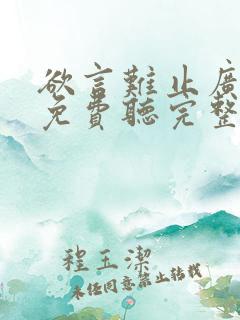 欲言難止廣
免費聽完整
程玉潔
未经同意禁止转载